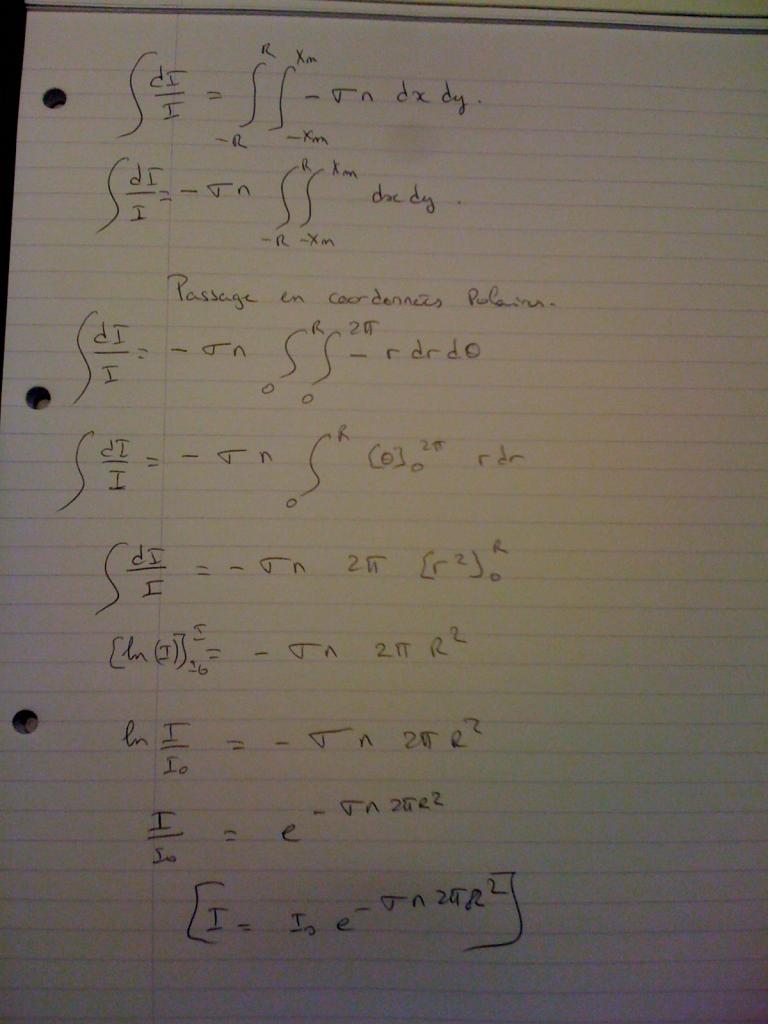 ∫ dI/I = ∫_{-R}^{R} ∫_{-Xm}^{Xm} - σn dx dy.
∫ dI/I = - σn ∫_{-R}^{R} ∫_{-Xm}^{Xm} dx dy.
Passage en coordonnées Polaires.
∫ dI/I = - σn ∫_{0}^{R} ∫_{0}^{2π} - r dr dθ
∫ dI/I = - σ n ∫_{0}^{R} [θ]_{0}^{2π} r dr
∫ dI/I = - σn 2π [r²]_{0}^{R}
[ln(I)]_{I0}^{I} = - σn 2π R²
ln I/I₀ = - σ n 2π R²
I/I₀ = e^{- σn 2πR²}
[I = I₀ e^{- σn 2πR²}]